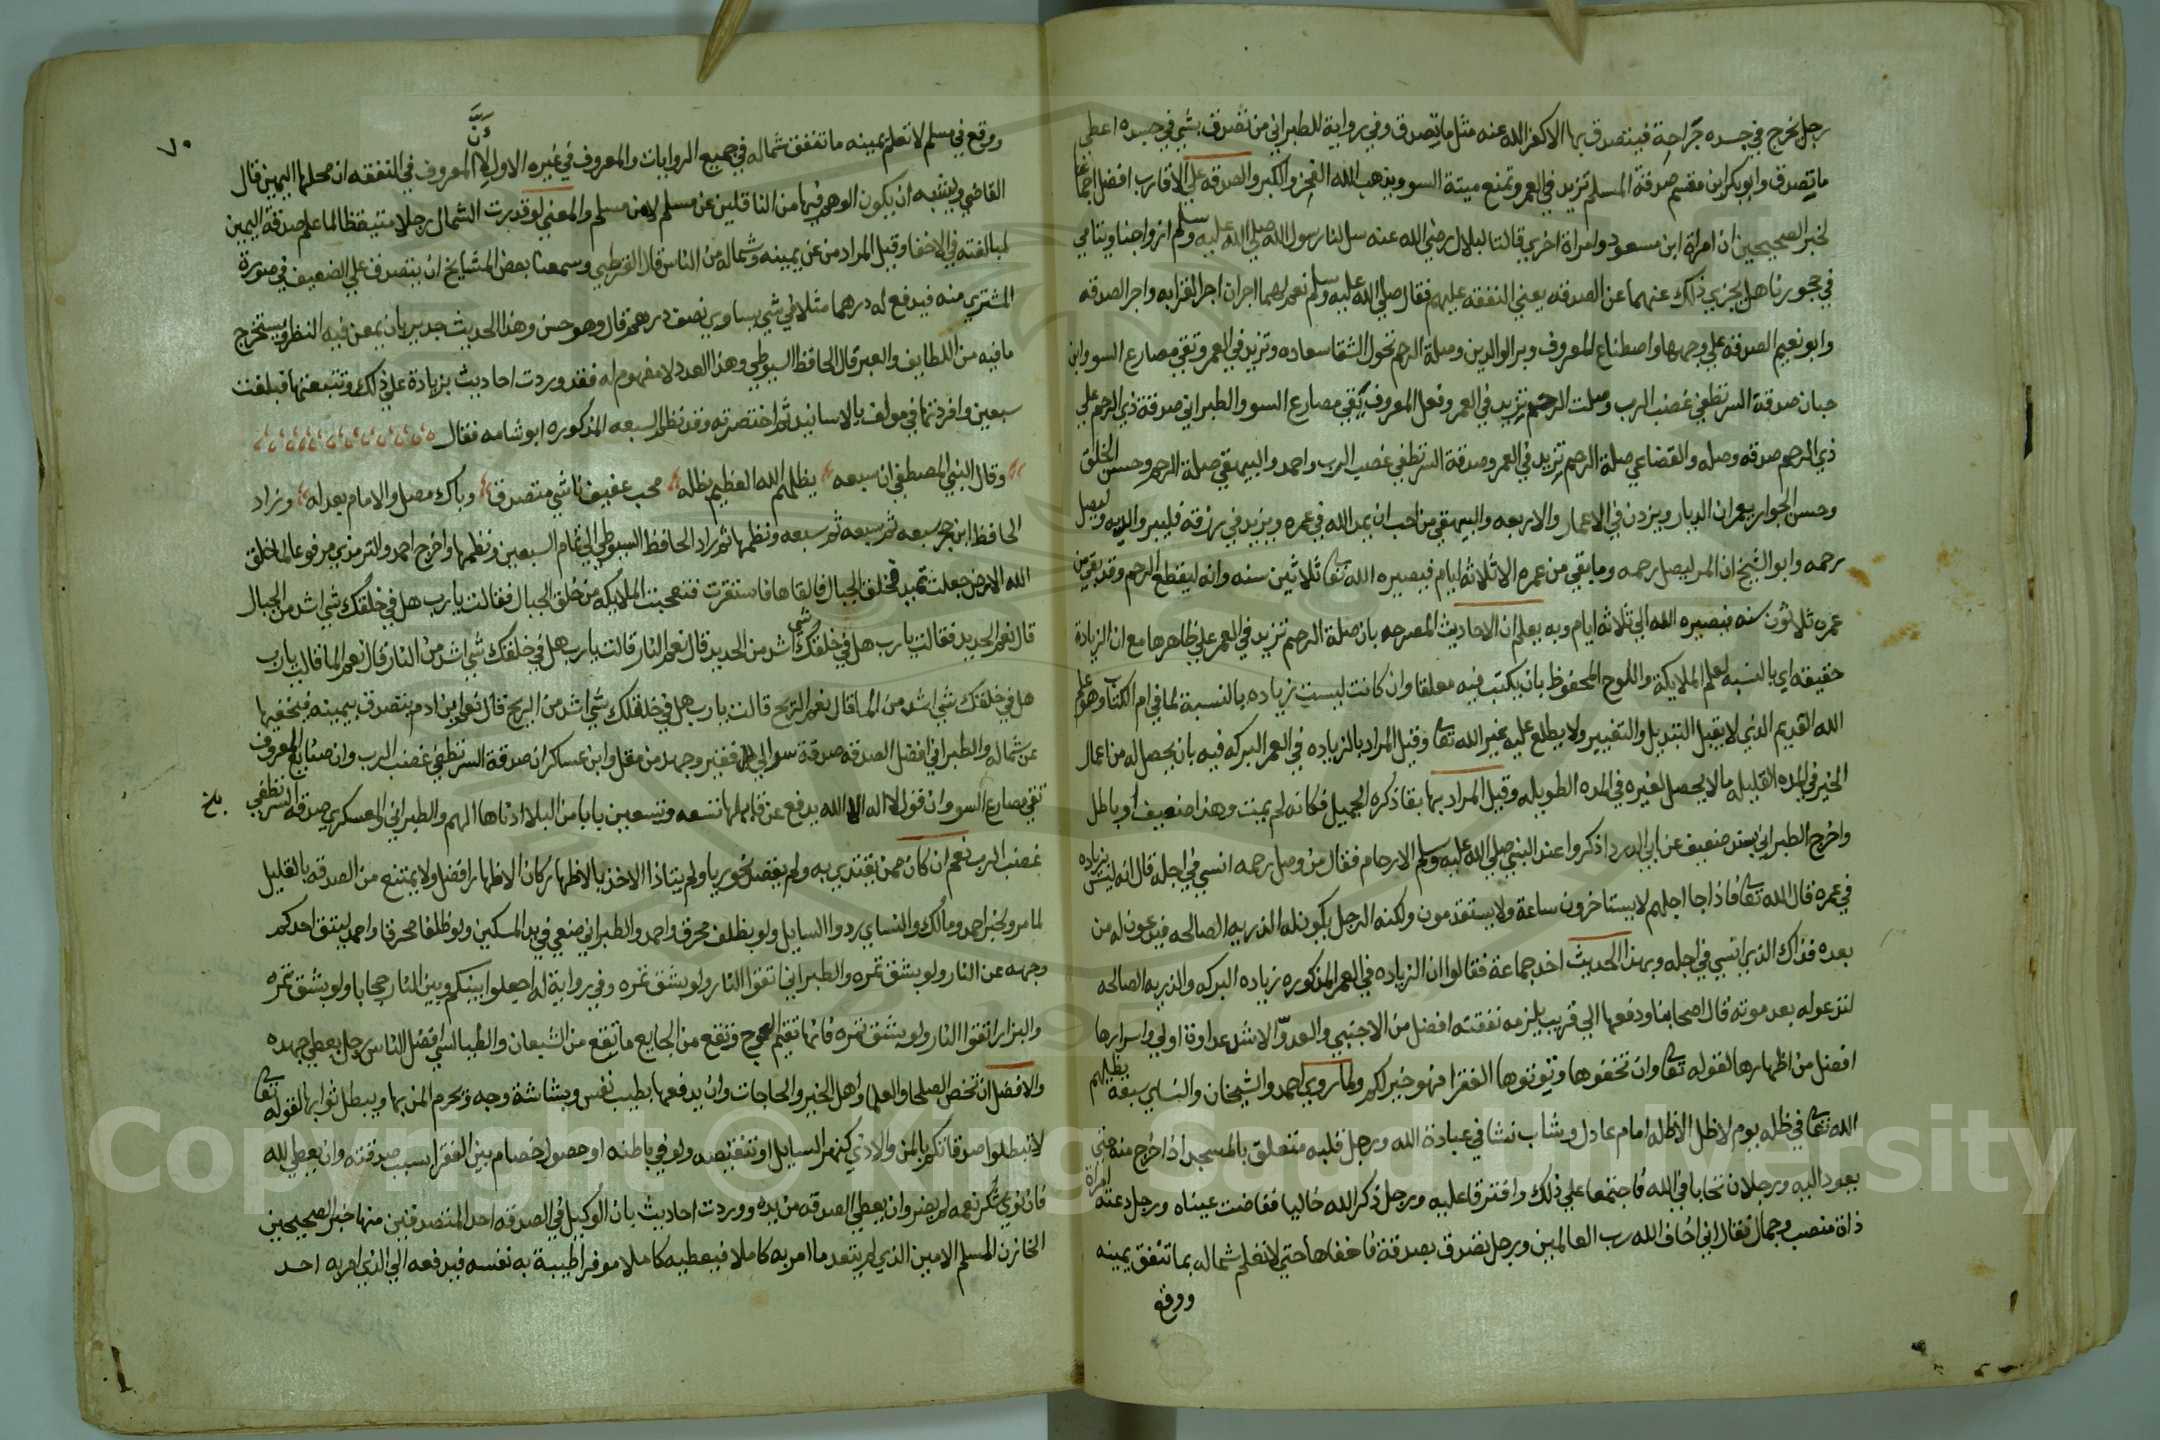 رجل يخرج في جسده جراحة فيتصدق بها الا كفر الله عنه مثل ما تصدق وفي رواية للطبراني من تصدق بشي في جسده اعطي
ما تصدق وابو بكر ابن مقسم صدقة المسلم تزيد في العمر وتمنع ميتة السو ويذهب الله الفخر والكبر والصدقة على الاقارب افضل اجماعا
لخبر الصحيحين ان امراة ابن مسعود وامراة اخري قالتا لبلال رضي الله عنه سل لنا رسول الله صلي الله عليه وسلم ازواجنا ويتامي
في حجورنا هل يجزي ذلك عنهما عن الصدقه يعني النفقه عليهم فقال صلي الله عليه وسلم نعم لهما اجران اجر القرابه واجر الصدقه
وابو نعيم الصدقه علي وجهها واصطناع المعروف وبر الوالدين وصلة الرحم تحول الشقا سعاده وتزيد في العمر وتقي مصارع السو وابن
حبان صدقة السر تطفي غضب الرب وصلت الرحم تزيد في العمر وفعل المعروف يقي مصارع السو والطبراني صدقة ذي الرحم علي
ذي الرحم صدقه وصله والقضاعي صلة الرحم تزيد في العمر وصدقة السر تطفي غضب الرب واحمد والبيهقي صلة الرحم وحسن الخلق
وحسن الجوار يعمران الديار ويزدن في الاعمار والاربعه والبيهقي من احب ان يمد الله في عمره ويزيد في رزقه فليبر والديه وليصل
رحمه وابو الشيخ ان المر ليصل رحمه وما بقي من عمره الا ثلاثه ايام فيصيره الله تعا ثلاثين سنه وانه ليقطع الرحم وقد بقي من
عمره ثلاثون سنه فيصيره الله الي ثلاثه ايام وبه يعلم ان الاحاديث المصرحه بان صلة الرحم تزيد في العمر علي ظاهرها مع ان الزيادة
حقيقه اي بالنسبه لعلم الملايكة واللوح المحفوظ بان يكتب فيه معلقا وان كانت ليست زياده بالنسبة لما في ام الكتاب وهو علم
الله القديم الذي لا يقبل التبديل والتغيير ولا يطلع عليه غير الله تعا وقيل المراد بالزياده في العمر البركه فيه بان يحصل له من اعمال
الخير في المده القليله ما لا يحصل لغيره في المده الطويله وقيل المراد بها بقا ذكره الجميل فكانه لم يمت وهذا ضعيف او باطل
واخرج الطبراني بسند ضعيف عن ابي الدردا ذكروا عند النبي صلي الله عليه وسلم الارحام فقال من وصل رحمه انسي في اجله قال انه ليس بزياده
في عمره قال الله تعا فاذا جا اجلهم لا يستاخرون ساعة ولا يستقدمون ولكنه الرجل يكون له الذريه الصالحه فيدعون له من
بعده فذاك الذي انسي في اجله وبهذا الحديث اخذ جماعة فقالوا ان الزياده في العمر المذكوره زياده البركه والذريه الصالحه
لتدعوا له بعد موته قال اصحابنا ودفعها الي قريب يلزمه نفقته افضل من الاجنبي والعدو الاشد عداوة اولي واسرارها
افضل من اظهارها لقوله تعا وان تخفوها وتوتوها الفقرا فهو خير لكم ولما روي احمد والشيخان والنساي سبعة يظلهم
الله تعا في ظله يوم لا ظل الا ظله امام عادل وشاب نشا في عبادة الله ورجل قلبه متعلق بالمسجد اذا خرج منه حتي
يعود اليه ورجلان تحابا في الله فاجتمعا علي ذلك وافترقا عليه ورجل ذكر الله خاليا ففاضت عيناه ورجل دعته امراة
ذاة منصب وجمال فقال اني اخاف الله رب العالمين ورجل تصدق بصدقة فاخفاها حتي لا تعلم شماله بما تنفق يمينه
ووقع
٧٠
ووقع في مسلم لا تعلم يمينه ما تنفق شماله في جميع الروايات والمعروف في غيره الاول لان المعروف في النفقه ان محلها اليمين قال
القاضي ويشبه ان يكون الوهم فيها من الناقلين عن مسلم لا من مسلم والمعني لو قدرت الشمال رجلا متيقظا لما علم صدقة اليمين
لمبالغته في الاخفا وقيل المراد من عن يمينه وشماله من الناس قال القرطبي وسمعنا بعض المشايخ ان يتصدق علي الضعيف في صورة
المشتري منه فيدفع له درهما مثلا في شي يساوي نصف درهم قال وهو حسن وهذا الحديث جدير بان يمعن فيه النظر ويستخرج
ما فيه من اللطايف والعبر قال الحافظ السيوطي وهذا العدد لا مفهوم له فقد وردت احاديث بزيادة علي ذلك وتتبعتها فبلغت
سبعين وافردتها في مولف بالاسانيد ثم اختصرته وقد نظم السبعه المذكوره ابو شامه فقال
وقال النبي المصطفي ان سبعه يظلهم الله العظيم بظله محب عفيف ناشي متصدق وباك مصل والامام بعدله وزاد
الحافظ ابن حجر سبعه ثم سبعه ثم سبعه ونظمها ثم زاد الحافظ السيوطي الي تمام السبعين ونظمها واخرج احمد والترمذي مرفوعا لما خلق
الله الارض جعلت تميد فخلق الجبال فالقاها فاستقرت فتعجبت الملايكه من خلق الجبال فقالت يا رب هل في خلقك شي اشد من الجبال
قال نعم الحديد فقالت يا رب هل في خلقك شي اشد من الحديد قال نعم النار قالت يا رب هل في خلقك شي اشد من النار قال نعم الما قالت يا رب
هل في خلقك شي اشد من الما قال نعم الريح قالت يا رب هل في خلقك شي اشد من الريح قال نعم ابن ادم يتصدق بيمينه فيخفيها
عن شماله والطبراني افضل الصدقه صدقة سر الي فقير وجهد من مقل وابن عساكر ان صدقة السر تطفي غضب الرب وان صنايع المعروف
تقي مصارع السو وان قول لا اله الا الله يدفع عن قايلها تسعه وتسعين بابا من البلا ادناها الهم والطبراني والعسكري صدقه السر تطفي
بلغ
غضب الرب نعم ان كان ممن يقتدي به ولم يقصد نحو ريا ولم يتاذا الاخذ بالاظهار كان الاظهار افضل ولا يمتنع من الصدقه بالقليل
لما مر ولخبر احمد ومالك والنساي ردوا السايل ولو بظلف محرق واحمد والطبراني ضعي في يد المسكين ولو ظلفا محرقا واحمد ليتق احدكم
وجهه عن النار ولو بشق تمره والطبراني اتقوا النار ولو بشق تمره وفي رواية له اجعلوا بينكم وبين النار حجابا ولو بشق تمره
والبزار اتقوا النار ولو بشق تمره فانها تقيم العوج وتقع من الجايع ما تقع من الشبعان والطيالسي افضل الناس رجل يعطي جهده
والافضل ان تخص الصلحا والعلما واهل الخير والحاجات وان يدفعها بطيب نفس وبشاشة وجه ويحرم المن بها ويبطل ثوابها لقوله تعا
لا تبطلوا صدقاتكم بالمن والاذي كنهر السايل او تنقيصه ولو في باطنه او حصول خصام بين الفقرا بسبب صدقته وان يعطي لله
فان نوي شكر نعمه لم يضر وان يعطي الصدقه من يده ووردت احاديث بان الوكيل في الصدقه احد المتصدقين منها خبر الصحيحين
الخازن المسلم الامين الذي لم يتعد ما امر به كاملا فيعطيه كاملا موفرا طيبة به نفسه فيدفعه الي الذي امر به احد
Copyright © King Saud University